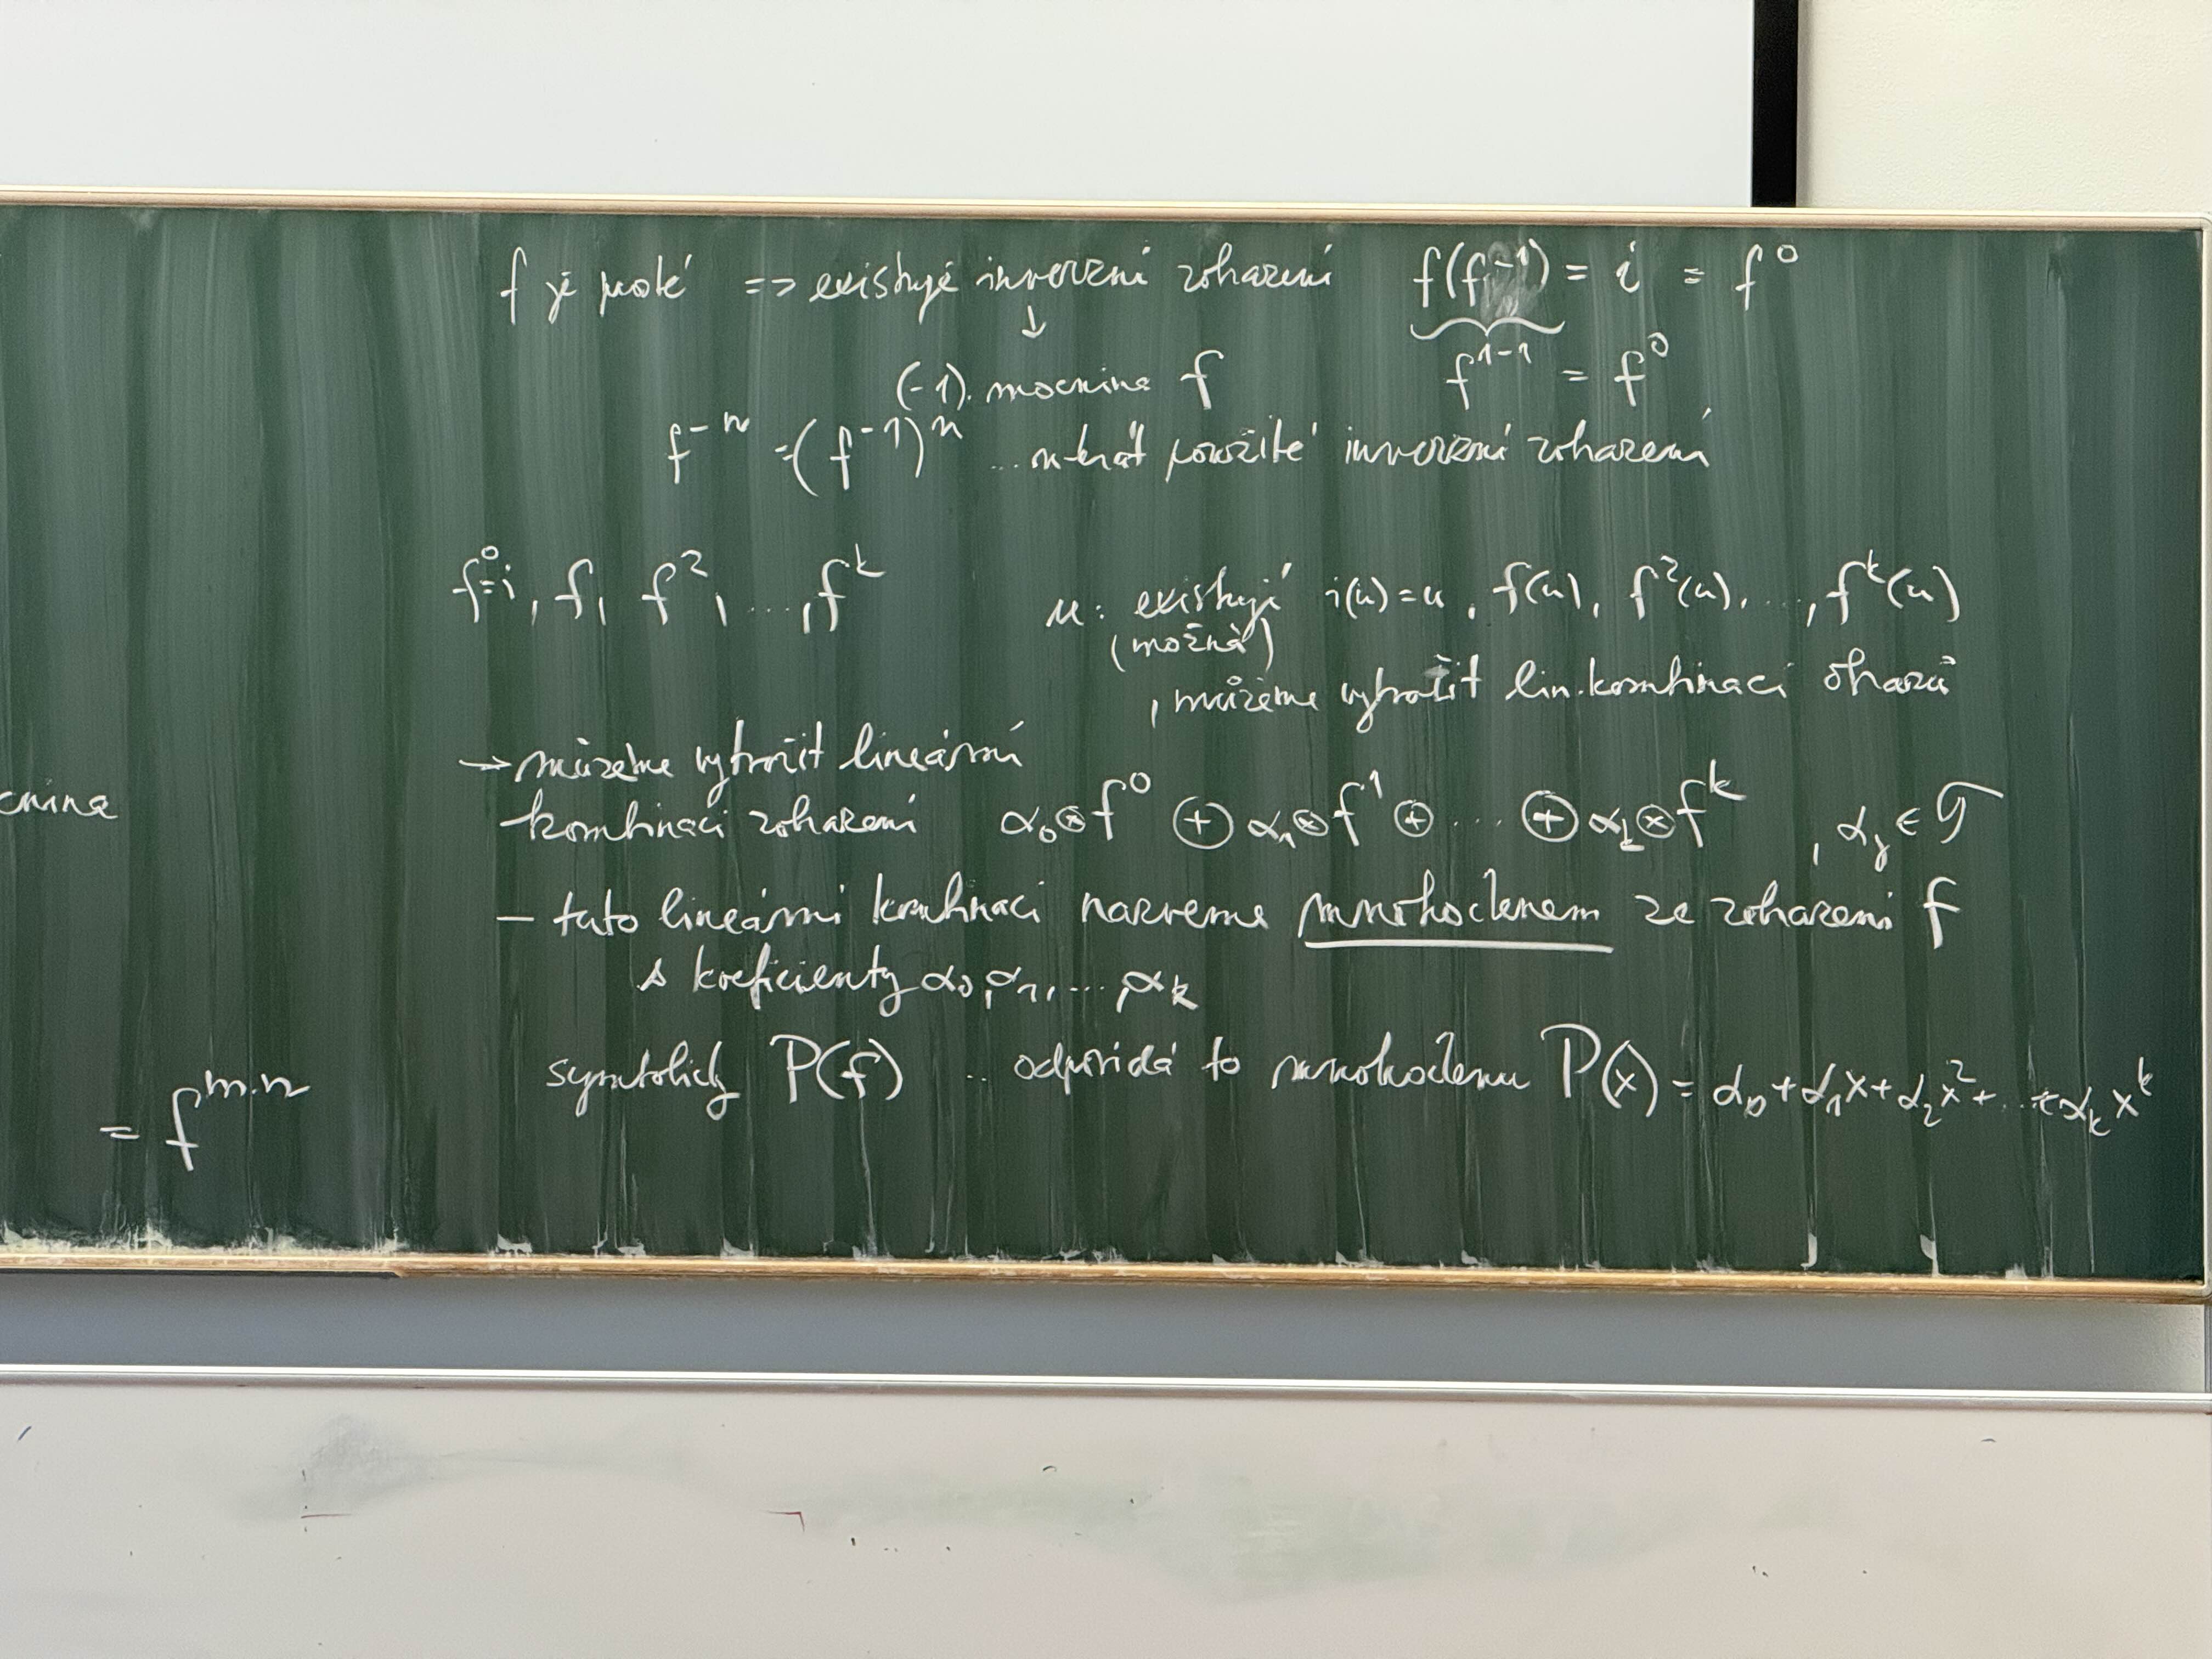 f je prosté => existuje inverzní zobrazení f(f⁻¹) = i = f⁰
↓
(-1). mocnina f f¹⁻¹ = f⁰
f⁻ⁿ = (f⁻¹)ⁿ ... n-krát použité inverzní zobrazení
f⁰=i, f, f², ..., fᵏ
u: existují i(u)=u, f(u), f²(u), ..., fᵏ(u)
(možná)
, můžeme vytvořit lin. kombinaci obrazů
→ můžeme vytvořit lineární
kombinaci zobrazení α₀⊗f⁰ ⊕ α₁⊗f¹ ⊕ ... ⊕ αₖ⊗fᵏ , αⱼ ∈ T
- tuto lineární kombinaci nazveme mnohočlenem ze zobrazení f
s koeficienty α₀, α₁, ..., αₖ
symbolicky P(f) .. odpovídá to mnohočlenu P(x) = α₀+α₁x+α₂x²+...+αₖxᵏ
= fᵐ·ⁿ